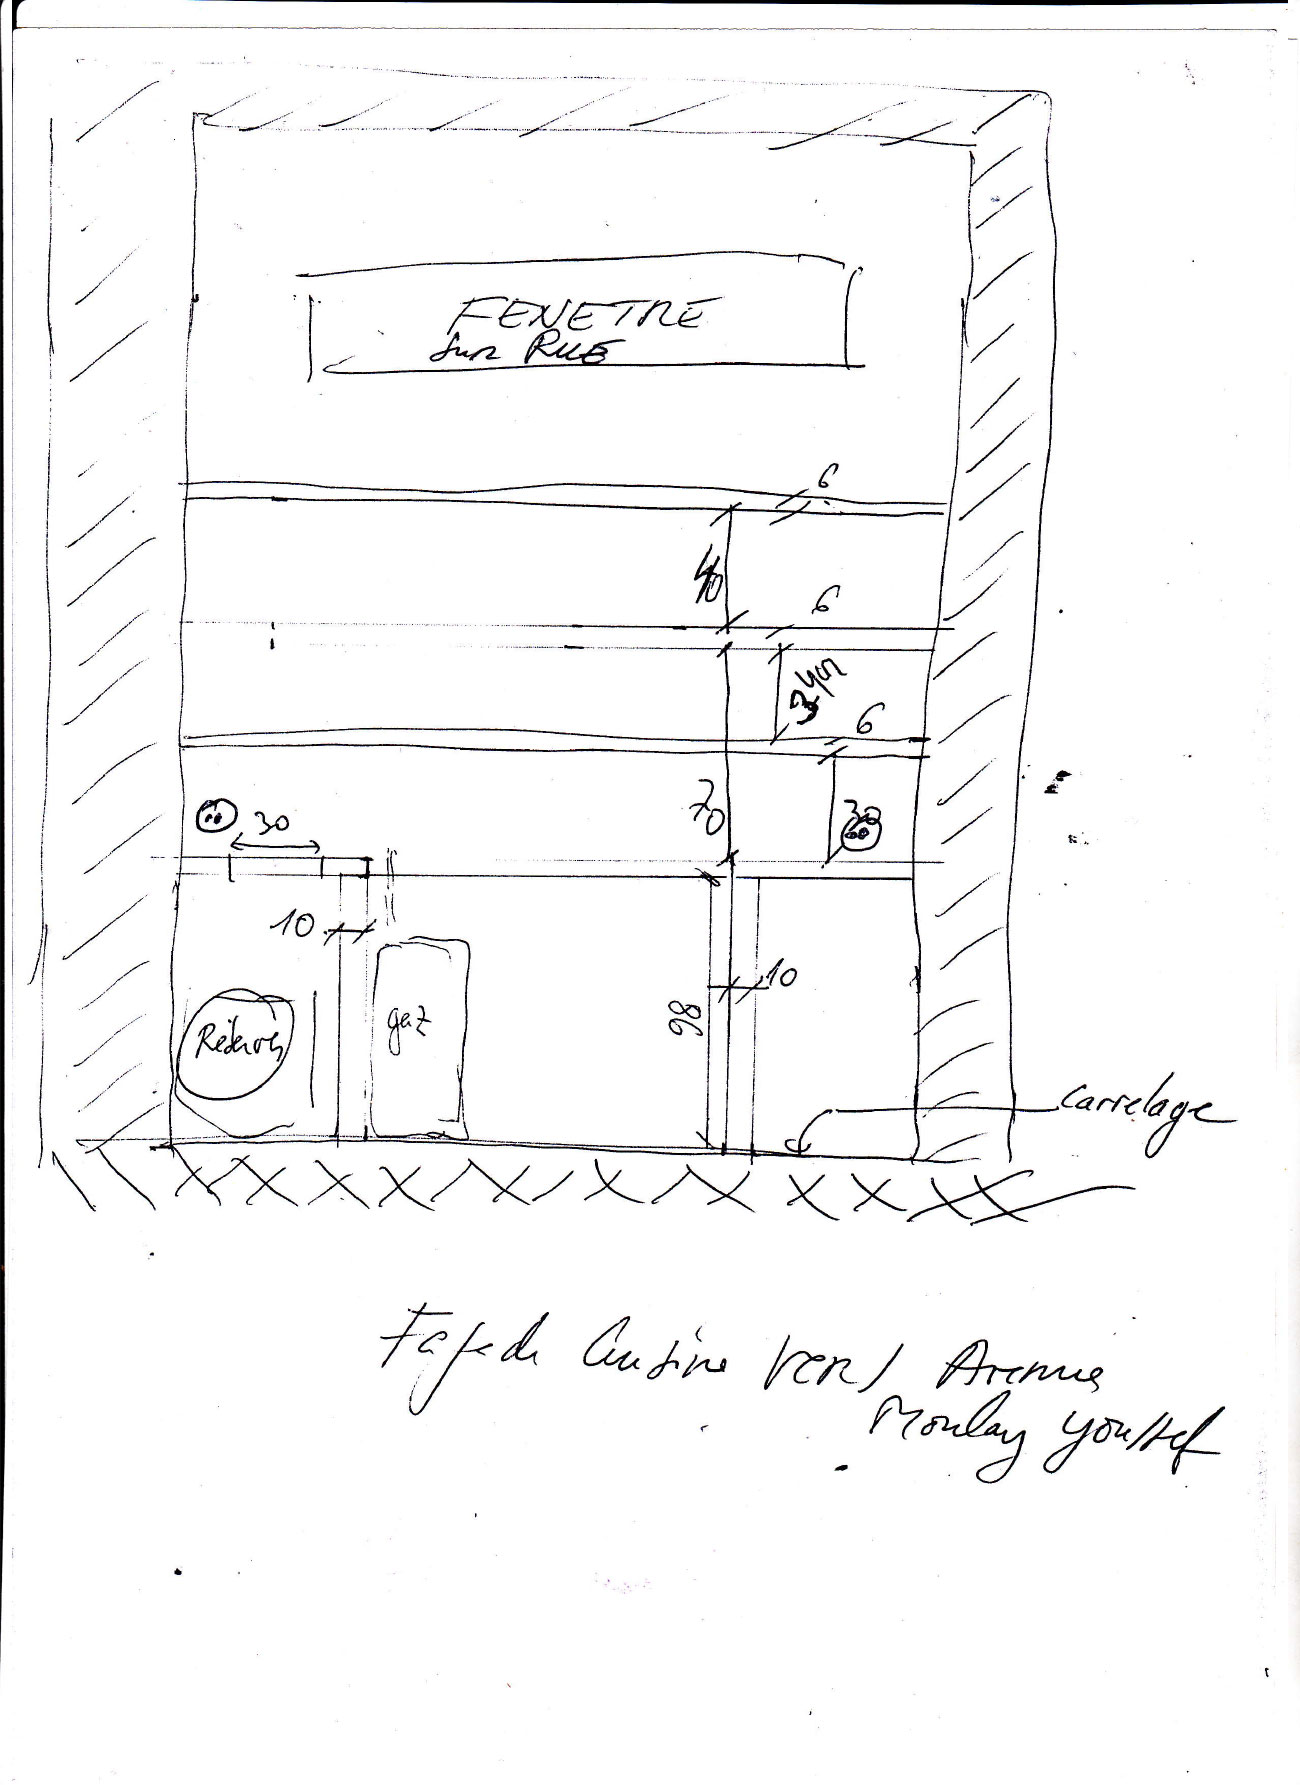 FENETRE
sur RUE
6
40
6
34
6
70
30
30
10
10
98
gaz
carrelage
Façade Cuisine vers Avenue
Moulay Youssef